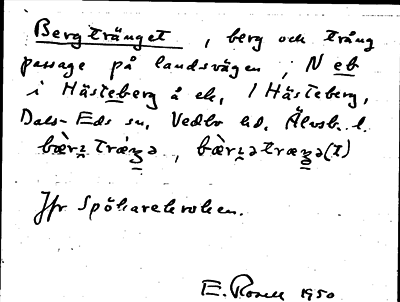 Bergtränget, berg och trång
passage på landsvägen, N eb
i Hästeberg å ek, 1 Hästeberg,
Dals-Eds sn, Vedbo hd, Älvsb. l.
Jfr Spökarekroken.
E. Rosell 1950